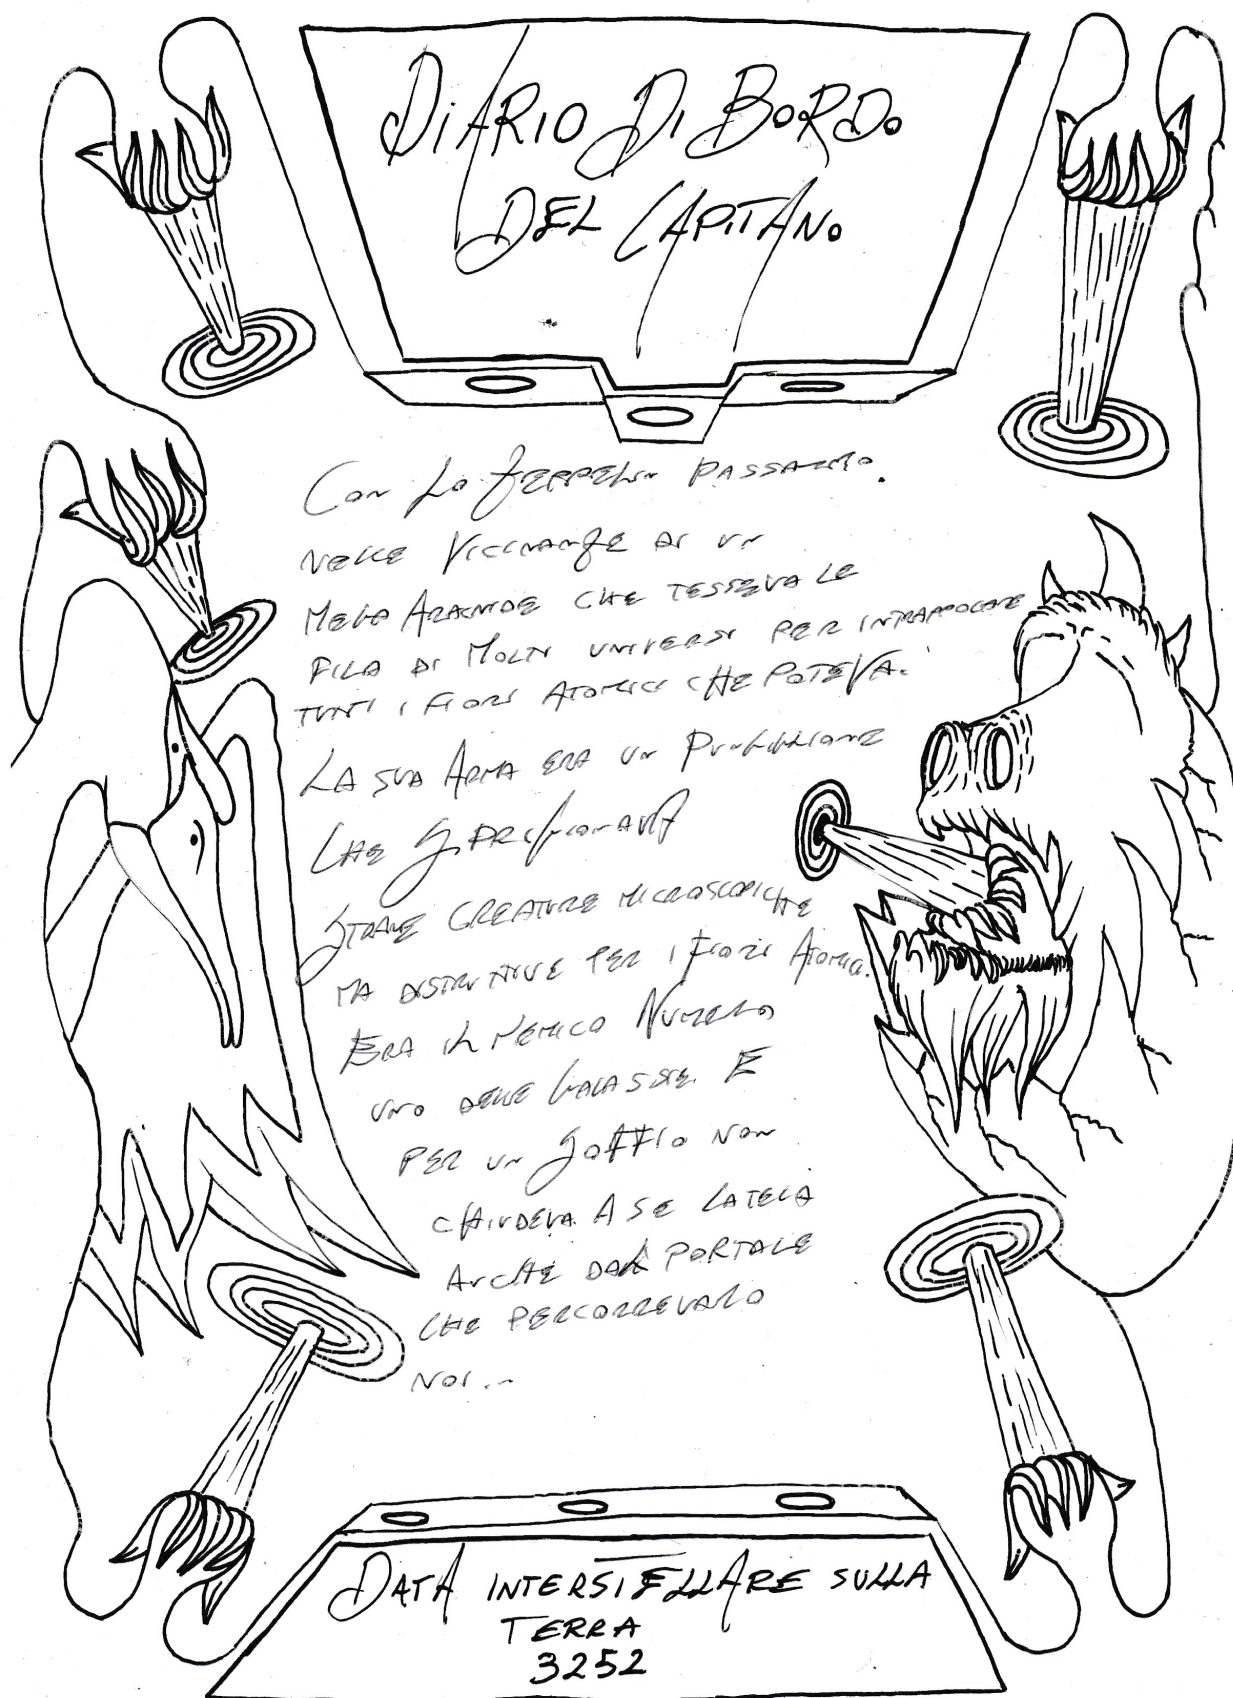 DiARIO Di BORDO
DEL CAPITANO
CON LO ZEPPELIN PASSAMMO
NELLE VICINANZE DI UN
MEGA ARACNIDE CHE TESSEVA LE
FILA DI MOLTI UNIVERSI PER INTRAPPOLARE
TUTTI I FIORI ATOMICI CHE POTEVA.
LA SUA ARMA ERA UN PUNGIGLIONE
CHE
STRANE CREATURE MICROSCOPICHE
MA DISTRUTTIVE PER I FIORI ATOMICI.
ERA IL NEMICO NUMERO
UNO DELLE GALASSIE. E
PER UN SOFFIO NON
CHIUDEVA A SE LA TELA
ANCHE DAL PORTALE
CHE PERCORREVAMO
NOI...
DATA INTERSTELLARE SULLA
TERRA
3252